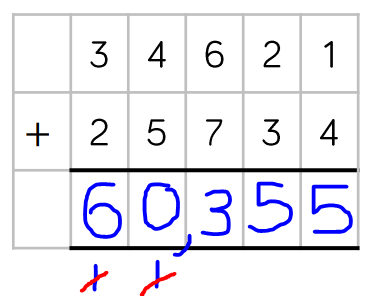 3 4 6 2 1
+ 2 5 7 3 4
60,355
1 1